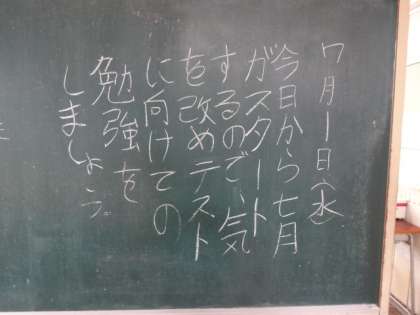 7月1日(水)
今日から七月
がスタート
するので、気
を改めテスト
に向けての
勉強を
しましょう。